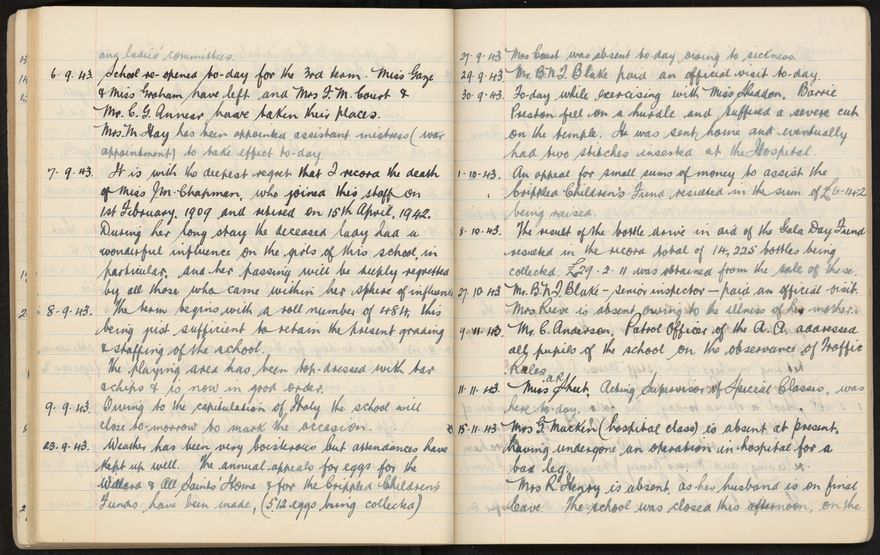 any ladies' committees.
6. 9. 43. School re-opened to-day for the 3rd term. Miss Gaze
& Miss Graham have left and Mrs F. M. Court &
Mr. C. G. Annear have taken their places.
Mrs. M. Hay has been appointed assistant mistress (war
appointment) to take effect to-day
7. 9. 43. It is with the deepest regret that I record the death
of Miss J. M. Chapman, who joined this staff on
1st February, 1909 and retired on 15th April, 1942.
During her long stay the deceased lady had a
wonderful influence on the girls of this school, in
particular, and her passing will be deeply regretted
by all those who came within her sphere of influence
8. 9. 43. The term begins with a roll number of 484, this
being just sufficient to retain the present grading
& staffing of the school.
The playing area has been top-dressed with tar
& chips & is now in good order.
9. 9. 43. Owing to the capitulation of Italy the school will
close to-morrow to mark the occasion.
23. 9. 43. Weather has been very boisterous but attendances have
kept up well. The annual appeals for eggs for the
& All Saints' Home & for the Crippled Children's
Funds have been made, (512 eggs being collected)
27. 9. 43 Mrs Court was absent to-day owing to sickness.
29. 9. 43 Mr. B. N. J. Blake paid an official visit to-day.
30. 9. 43. To-day while exercising with Miss Haddon, Barrie
Preston fell on a hurdle and suffered a severe cut
on the temple. He was sent home and eventually
had two stitches inserted at the Hospital.
1. 10. 43. An appeal for small sums of money to assist the
Crippled Children's Fund resulted in the sum of £6-14-2
being raised.
8. 10. 43. The result of the bottle drive in aid of the Gala Day Fund
resulted in the record total of 14,225 bottles being
collected. £29-2-11 was obtained from the sale of these.
27. 10. 43 Mr. B. N. J. Blake - senior inspector - paid an official visit.
Mrs. Reeve is absent owing to the illness of her mother.
9. 11. 43. Mr. C. Anderson, Patrol Officer of the A. A. addressed
all pupils of the school on the observance of Traffic
Rules.
11. 11. 43. Miss Acting Supervisor of Special Classes, was
here to-day.
15. 11. 43 Mrs G. Mackin (hospital class) is absent at present,
having undergone an operation in hospital for a
bad leg.
Mrs R. Henry is absent, as her husband is on final
leave. The school was closed this afternoon, on the